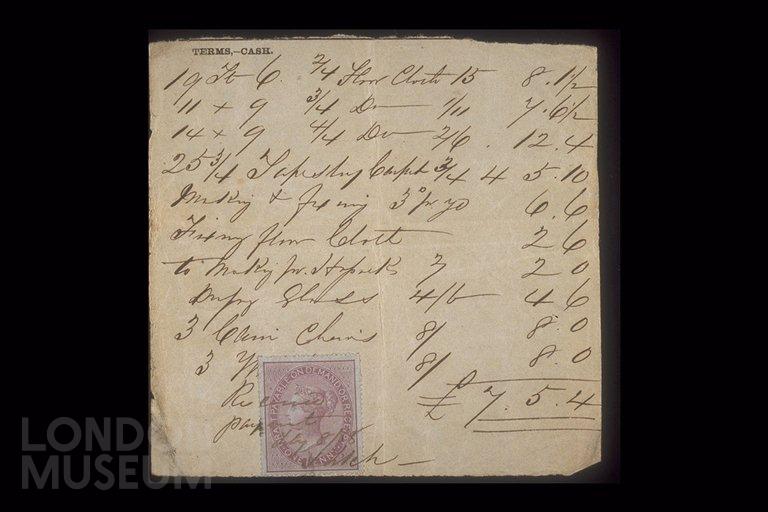 TERMS,—CASH.
19 ft 6. 2/4 Floor Cloth 15 8.1½
11 × 9 3/4 Do — 1/11 7.6½
14 × 9 4/4 Do — 2/6. 12.4
25¾ Tapestry Carpet 3/4 4 5.10
Making & fixing 3 6.6
Fixing floor Cloth 2 6
to Making pr. 2 0
Glass 4/6 4 6
3 Cain Chairs 8/ 8.0
3 8/ 8.0
£ 7.5.4
Received
payment
PAYABLE ON DEMAND OR RECEIPT
ONE PENNY
LONDON
MUSEUM